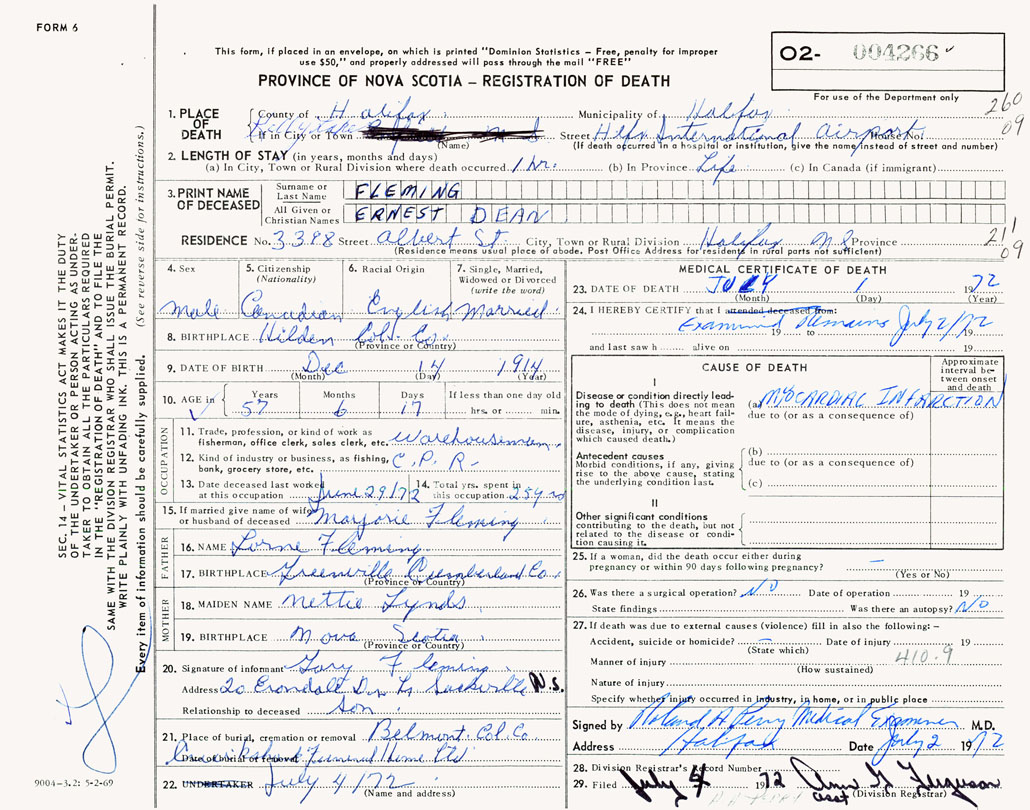 FORM 6
This form, if placed in an envelope, on which is printed "Dominion Statistics – Free, penalty for improper
use $50," and properly addressed will pass through the mail "FREE"
PROVINCE OF NOVA SCOTIA – REGISTRATION OF DEATH
O2- 004266
For use of the Department only
260
09
1. PLACE OF DEATH
County of Halifax Municipality of Halifax
If in City or Town (Name) Street Hfx International airport House No.
(If death occurred in a hospital or institution, give the name instead of street and number)
2. LENGTH OF STAY (in years, months and days)
(a) In City, Town or Rural Division where death occurred 1 hr. (b) In Province Life (c) In Canada (if immigrant)
3. PRINT NAME OF DECEASED
Surname or Last Name FLEMING
All Given or Christian Names ERNEST DEAN
RESIDENCE No. 3398 Street Albert St City, Town or Rural Division Halifax N S Province
(Residence means usual place of abode. Post Office Address for residents in rural parts not sufficient)
211
09
4. Sex 5. Citizenship (Nationality) 6. Racial Origin 7. Single, Married, Widowed or Divorced (write the word)
male Canadian English Married
8. BIRTHPLACE Hilden Col. Co.
(Province or Country)
9. DATE OF BIRTH Dec 14 1914
(Month) (Day) (Year)
10. AGE in Years Months Days If less than one day old
57 6 17 hrs. or min.
OCCUPATION
11. Trade, profession, or kind of work as
fisherman, office clerk, sales clerk, etc. Warehouseman
12. Kind of industry or business, as fishing,
bank, grocery store, etc. C.P.R.
13. Date deceased last worked
at this occupation June 29/72
14. Total yrs. spent in
this occupation 25 yrs
15. If married give name of wife
or husband of deceased Marjorie Fleming
FATHER
16. NAME Lorne Fleming
17. BIRTHPLACE Greenville Cumberland Co.
(Province or Country)
MOTHER
18. MAIDEN NAME Nettie Lynds
19. BIRTHPLACE Nova Scotia
(Province or Country)
20. Signature of informant Gary Fleming
Address 20 Dr. L. Sackville N.S.
Relationship to deceased Son
21. Place of burial, cremation or removal Belmont Col. Co
Date of burial or removal Funeral Home Ltd
22. UNDERTAKER July 4/72
(Name and address)
MEDICAL CERTIFICATE OF DEATH
23. DATE OF DEATH JULY 1 1972
(Month) (Day) (Year)
24. I HEREBY CERTIFY that I attended deceased from:
Examined Remains July 2/72
19 19
and last saw h alive on 19
CAUSE OF DEATH
Approximate interval between onset and death
I
Disease or condition directly leading
to death (This does not mean
the mode of dying, e.g., heart failure,
asthenia, etc. it means the
disease, injury, or complication
which caused death.)
(a) MYOCARDIAC INFARCTION
due to (or as a consequence of)
Antecedent causes
Morbid conditions, if any, giving
rise to the above cause, stating
the underlying condition last.
(b)
due to (or as a consequence of)
(c)
II
Other significant conditions
contributing to the death, but not
related to the disease or condition
causing it.
25. If a woman, did the death occur either during
pregnancy or within 90 days following pregnancy? –
(Yes or No)
26. Was there a surgical operation? NO Date of operation 19
State findings Was there an autopsy? NO
27. If death was due to external causes (violence) fill in also the following: –
Accident, suicide or homicide? – Date of injury 19
(State which)
410.9
Manner of injury
(How sustained)
Nature of injury
Specify whether injury occurred in industry, in home, or in public place
Signed by Roland H Perry Medical Examiner M.D.
Address Halifax Date July 2 1972
28. Division Registrar's Record Number
29. Filed July 4 1972 Ann G Ferguson
asst (Division Registrar)
SEC. 14 – VITAL STATISTICS ACT MAKES IT THE DUTY
OF THE UNDERTAKER OR PERSON ACTING AS UNDER-
TAKER TO OBTAIN ALL THE PARTICULARS REQUIRED
IN THE "REGISTRATION OF DEATH" AND TO FILE THE
SAME WITH THE DIVISION REGISTRAR WHO SHALL ISSUE THE BURIAL PERMIT.
WRITE PLAINLY WITH UNFADING INK. THIS IS A PERMANENT RECORD.
Every item of information should be carefully supplied. (See reverse side for instructions.)
9004-3.2: 5-2-69